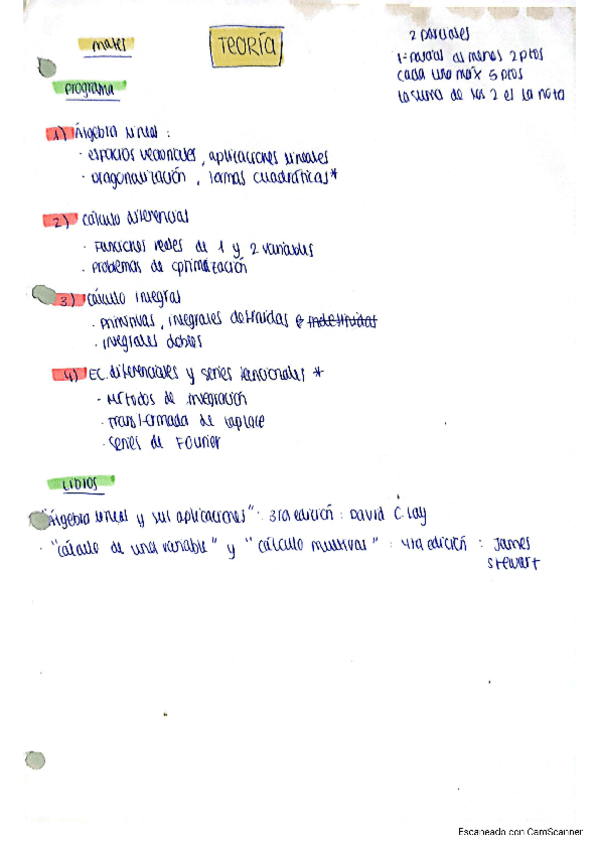 mates
TEORÍA
2 parciales
1º parcial al menos 2 ptos
cada uno max 5 ptos
la suma de los 2 es la nota
programa
1) Álgebra lineal :
· espacios vectoriales, aplicaciones lineales
· Diagonalización, formas cuadráticas *
2) cálculo diferencial
· Funciones reales de 1 y 2 variables
· Problemas de optimización
3) cálculo integral
· Primitivas, integrales definidas e indefinidas
· integrales dobles
4) EC. diferenciales y series funcionales *
· Métodos de integración
· Transformada de Laplace
· Series de Fourier
Libros
· "Álgebra lineal y sus aplicaciones" : 3ra edición : David C. Lay
· "cálculo de una variable" y "cálculo multivar" : 4ta edición : James
Stewart
Escaneado con CamScanner